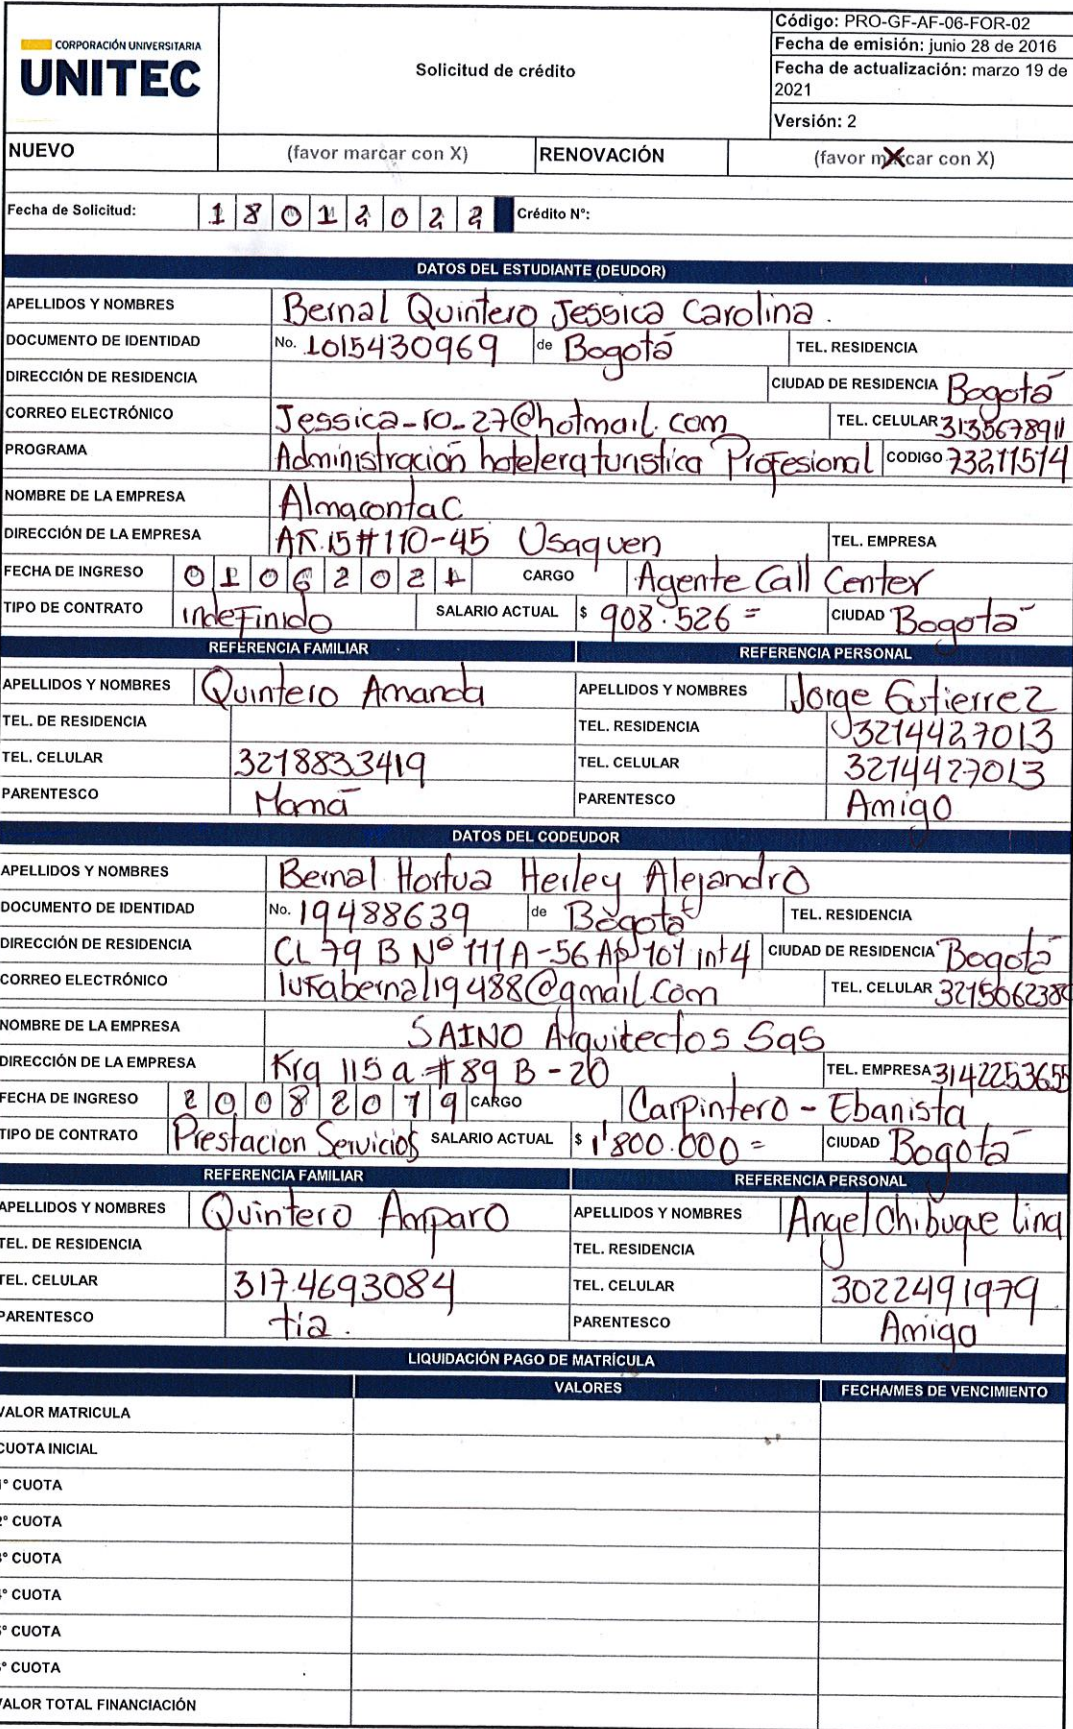 CORPORACIÓN UNIVERSITARIA
UNITEC
Solicitud de crédito
Código: PRO-GF-AF-06-FOR-02
Fecha de emisión: junio 28 de 2016
Fecha de actualización: marzo 19 de 2021
Versión: 2
NUEVO (favor marcar con X) RENOVACIÓN (favor marcar con X) X
Fecha de Solicitud: 1 8 0 1 2 0 2 2 Crédito N°:
DATOS DEL ESTUDIANTE (DEUDOR)
APELLIDOS Y NOMBRES Bernal Quintero Jessica Carolina.
DOCUMENTO DE IDENTIDAD No. 1015430969 de Bogotá TEL. RESIDENCIA
DIRECCIÓN DE RESIDENCIA CIUDAD DE RESIDENCIA Bogotá
CORREO ELECTRÓNICO Jessica-10-27@hotmail.com TEL. CELULAR 3135678911
PROGRAMA Administración hotelera turistica Profesional CODIGO 73211514
NOMBRE DE LA EMPRESA Almacontac
DIRECCIÓN DE LA EMPRESA AK.15#110-45 Usaquen TEL. EMPRESA
FECHA DE INGRESO 0 1 0 6 2 0 2 1 CARGO Agente Call Center
TIPO DE CONTRATO indefinido SALARIO ACTUAL $ 908.526= CIUDAD Bogotá
REFERENCIA FAMILIAR REFERENCIA PERSONAL
APELLIDOS Y NOMBRES Quintero Amanda APELLIDOS Y NOMBRES Jorge Gutierrez
TEL. DE RESIDENCIA TEL. RESIDENCIA 3214427013
TEL. CELULAR 3218833419 TEL. CELULAR 3214427013
PARENTESCO Mamá PARENTESCO Amigo
DATOS DEL CODEUDOR
APELLIDOS Y NOMBRES Bernal Hortua Herley Alejandro
DOCUMENTO DE IDENTIDAD No. 19488639 de Bogotá TEL. RESIDENCIA
DIRECCIÓN DE RESIDENCIA CL 79 B N° 111A-56 Ap 101 int 4 CIUDAD DE RESIDENCIA Bogotá
CORREO ELECTRÓNICO lufabernal19488@gmail.com TEL. CELULAR 3215062380
NOMBRE DE LA EMPRESA SAINO Arquitectos Sas
DIRECCIÓN DE LA EMPRESA Kra 115 a #89 B-20 TEL. EMPRESA 3142253655
FECHA DE INGRESO 2 0 0 8 2 0 1 9 CARGO Carpintero - Ebanista
TIPO DE CONTRATO Prestacion Servicios SALARIO ACTUAL $ 1'800.000= CIUDAD Bogotá
REFERENCIA FAMILIAR REFERENCIA PERSONAL
APELLIDOS Y NOMBRES Quintero Amparo APELLIDOS Y NOMBRES Angel Chibuque lina
TEL. DE RESIDENCIA TEL. RESIDENCIA
TEL. CELULAR 317.4693084 TEL. CELULAR 3022491979.
PARENTESCO tia. PARENTESCO Amigo
LIQUIDACIÓN PAGO DE MATRÍCULA
VALORES FECHA/MES DE VENCIMIENTO
VALOR MATRICULA
CUOTA INICIAL
1° CUOTA
2° CUOTA
3° CUOTA
4° CUOTA
5° CUOTA
6° CUOTA
VALOR TOTAL FINANCIACIÓN